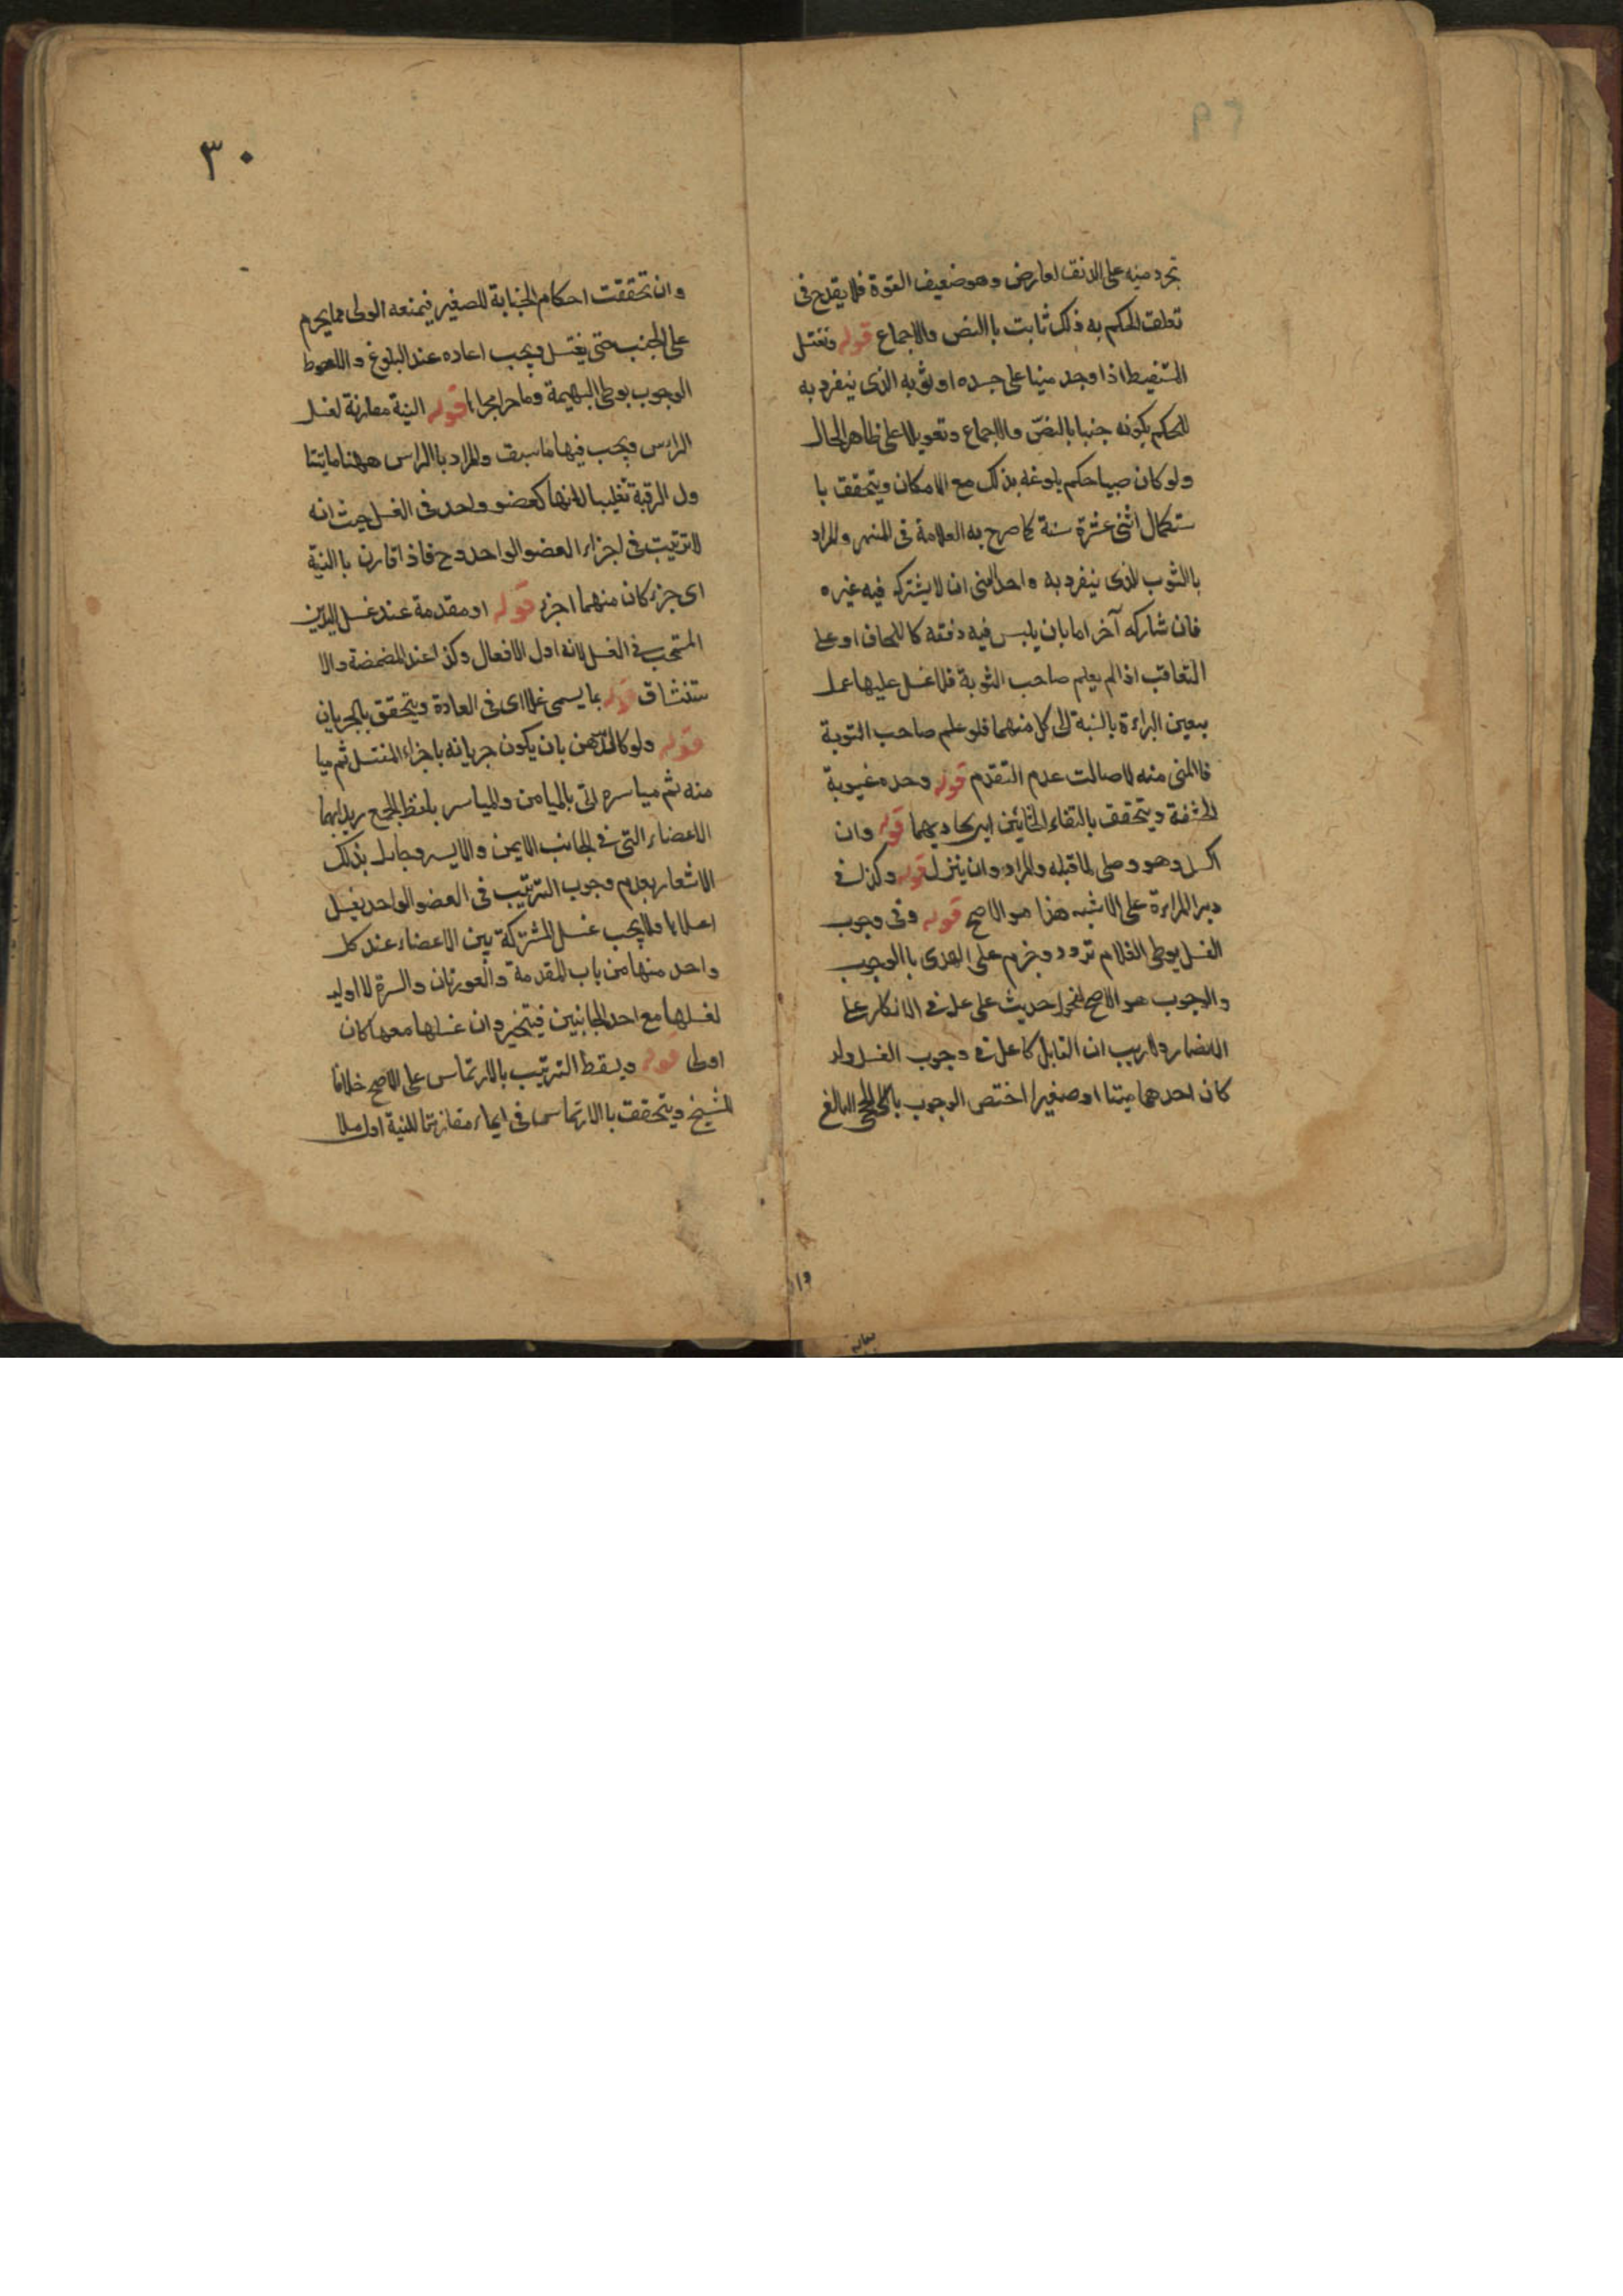 تجرد منيه على الدفق لعارض وهو ضعيف القوة فلا يقدح في
تعلق الحكم به فذلك ثابت باالنص والاجماع قوله ويغتسل
المستيقظ اذا وجد منيا على جسده او ثوبه الذى ينفرد به
للحكم بكونه جنبا بالنص والاجماع وتعويلا على ظاهر الحال
ولو كان صبيا حكم بلوغه بذلك مع الامكان ويتحقق با
ستكمال اثنى عشرة سنة كما صرح به العلامة فى المنتهى والمراد
باالثوب الذى ينفرد به واجد المنى ان لا يشترك فيه غيره
فان شاركه آخر اما بان يلبس فيه دفعة كاللحاف او على
التعاقب اذا لم يعلم صاحب النوبة فلا غسل عليها عملا
بيقين البراءة بالنسبة الى كل منهما فلو علم صاحب النوبة
فاالمنى منه لاصالت عدم التقدم قوله وحده غيبوبة
الحشفة ويتحقق بالتقاء الختانين اى تحاذيهما قوله وان
اكسل وهو وصلى لما قبله والمراد وان لم ينزل قوله وكذا فى
دبر المراءة على الاشبه هذا هو الاصح قوله وفى وجوب
الغسل بوطى الغلام تردد وجزم علم الهدى باالوجوب
والوجوب هو الاصح لفحوا حديث على ع فى الانكار على
الانصار ولا ريب ان القابل كالفاعل فى وجوب الغسل ولو
كان احدهما ميتا او صغيرا اختص الوجوب باالحى البالغ
وا
٣٠
وان تحققت احكام الجنابة للصغير فيمنعه الولى مما يحرم
على الجنب حتى يغتسل ويجب اعاده عند البلوغ والاحوط
الوجوب بوطى البهيمة وما جرا مجراها قوله النية مقارنة لغسل
الراس ويجب فيها ما سبق والمراد باالراس ههنا ما يتنا
ول الرقبة تغليبا لانها كعضو واحد فى الغسل حيث انه
لا ترتيب فى اجزاء العضو الواحد وح فاذا قارن باالنية
اى جزء كان منهما اجزء قوله او مقدمة عند غسل اليدين
المستحب فى الغسل لانه اول الافعال وكذا عند المضمضة والا
ستنشاق قوله بما يسمى غسلا اى فى العادة ويتحقق بالجريان
قوله ولو كالدهن بان يكون جريانه باجزاء المغتسل ثم ميا
منه ثم مياسره اتى بالميامن والمياسر بلفظ الجمع يريد بهما
الاعضاء التى فى الجانب الايمن والايسر وحاول بذلك
الاشعار بعدم وجوب الترتيب فى العضو الواحد بغسل
اعلاها ولا يجب غسل المشتركة بين الاعضاء عند كل
واحد منها من باب المقدمة والعورتان والسرة لا اولية
لغسلها مع احد الجانبين فيتخير وان غسلها معهما كان
اولى قوله ويسقط الترتيب بالارتماس على الاصح خلافا
للشيخ ويتحقق باالارتماس فى الماء مقارنتا للنية اول ملا